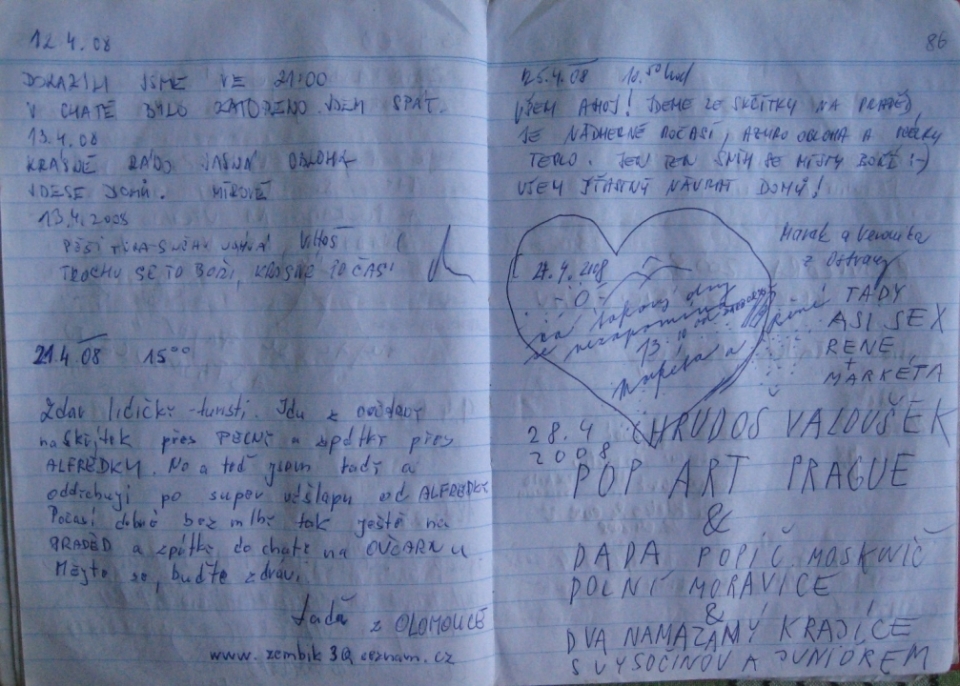 12.4.08
DORAZILI JSME VE 21:00
V CHATĚ BYLO ZATOPENO. JDEM SPÁT.
13.4.08
KRÁSNÉ RÁNO JASNÁ OBLOHA
13.4.2008
TROCHU SE TO BOŘÍ, KRÁSNÉ POČASÍ
21.4.08 15⁰⁰
Zdar lidičky - turisti. Jdu z
přes PECNÝ a zpátky přes
ALFRÉDKU. No a teď jsem tady a
po super výšlapu od ALFRÉDKY
Počasí dobré bez mlhy tak ještě na
PRADĚD a zpátky do chaty na OVČÁRNU
Mějte se, buďte zdrávi.
Lada z OLOMOUCE
www.zembik3@seznam.cz
86
25.4.08 10.50 hod
VŠEM AHOJ! JDEME ZE SKŘÍTKU NA PRADĚD,
JE NÁDHERNÉ POČASÍ, AZURO OBLOHA A
TEPLO. JEN TEN SNÍH SE MÍSTY BOŘÍ :-)
VŠEM ŠŤASTNÝ NÁVRAT DOMŮ!
Marek a Veronika
z Ostravy
27.4.2008
na takový dny
se nezapomíná
13.
Markéta a René
TADY
ASI SEX
RENÉ
+
MARKÉTA
28.4 CHRUDOŠ VALOUŠEK
2008
POP ART PRAGUE
&
DADA POPIČ MOSKWIČ
DOLNÍ MORAVICE
&
DVA NAMAZAMÝ KRAJÍCE
S VYSOČINOV A JUNIOREM